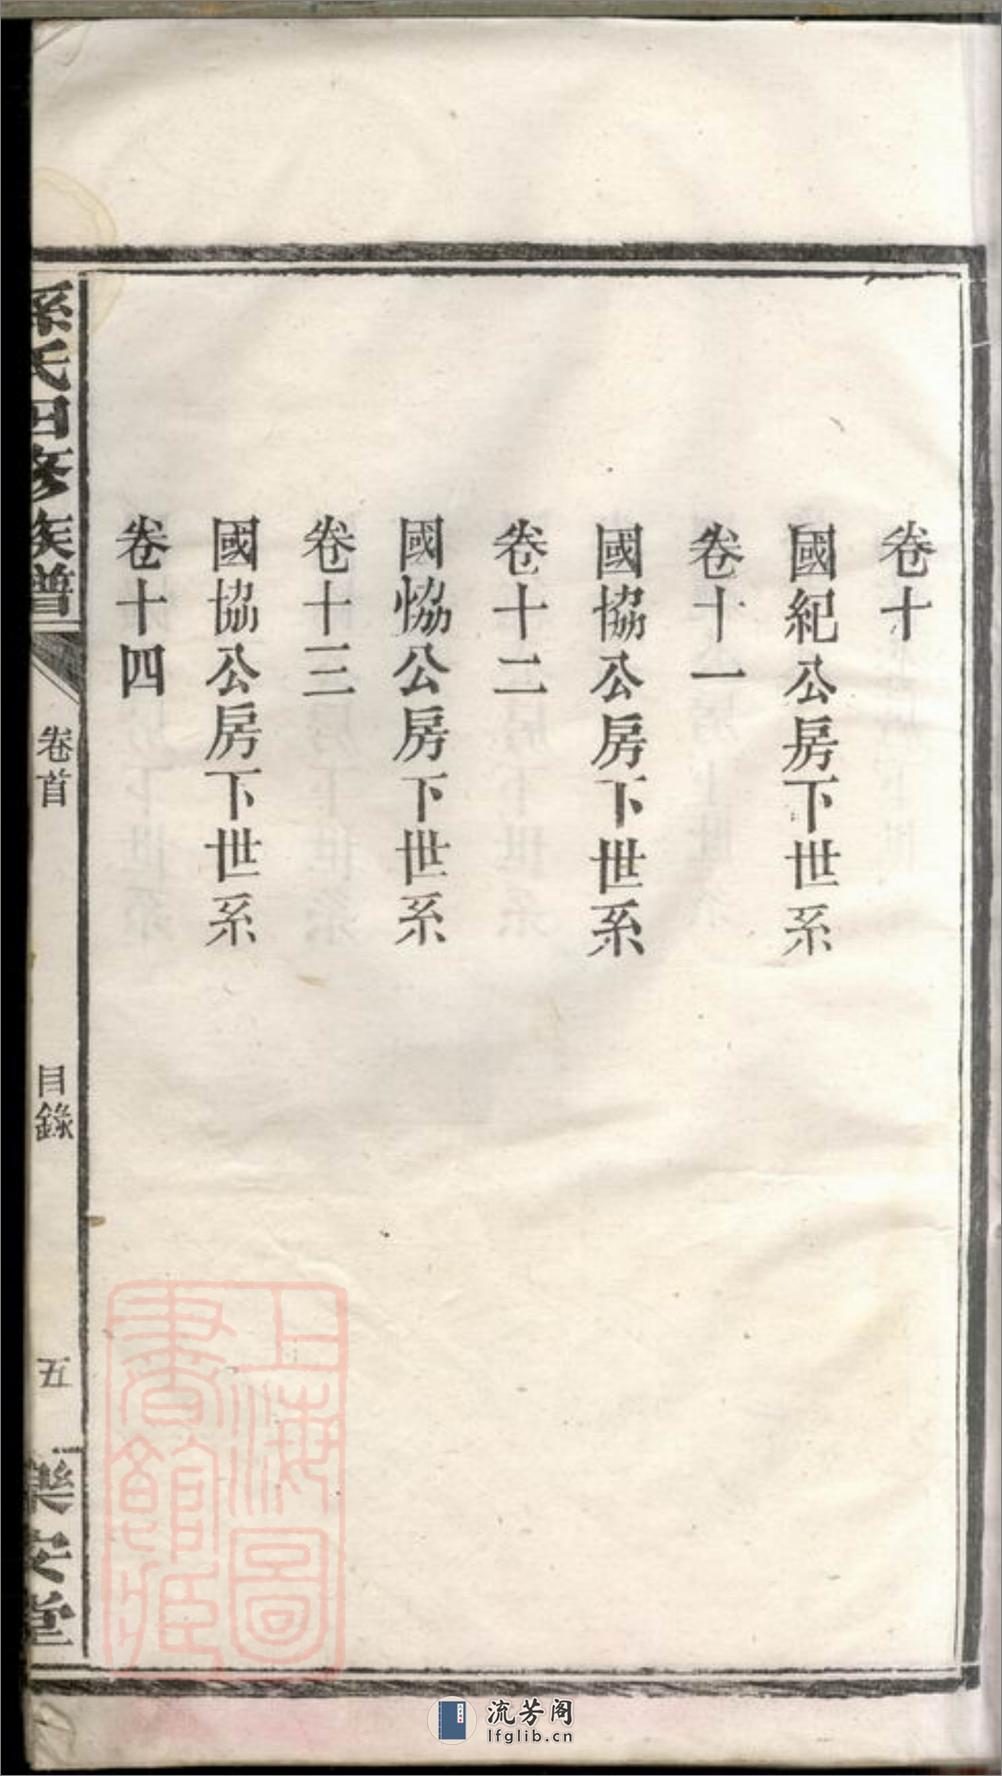 卷十
國紀公房下世系
卷十一
國協公房下世系
卷十二
國恊公房下世系
卷十三
國協公房下世系
卷十四
孫氏四修族譜
卷首
目錄
五
樂安堂
上海圖書館藏
流芳阁
lfglib.cn